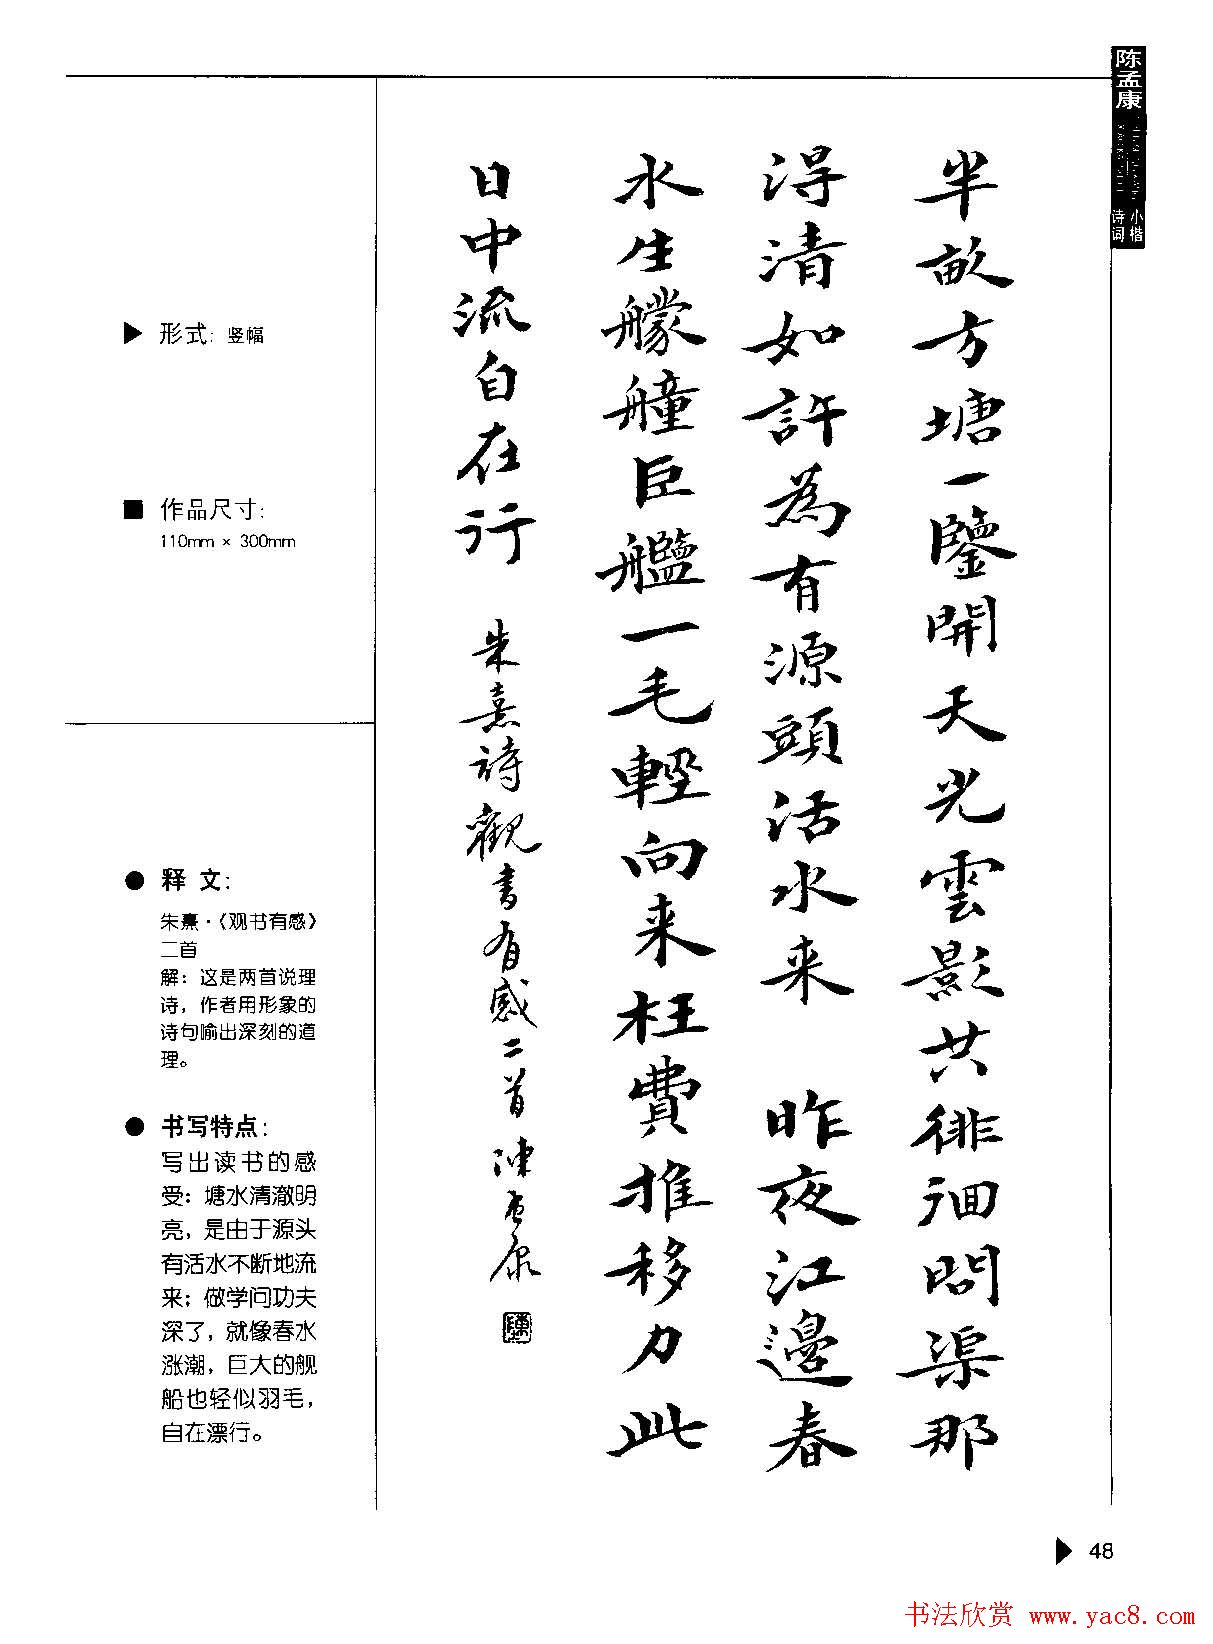 陈孟康
小楷
诗词
半畝方塘一鑒開天光雲影共徘徊問渠那
得清如許為有源頭活水来 昨夜江邊春
水生艨艟巨艦一毛輕向来枉費推移力此
日中流自在行 朱熹詩觀書有感二首 陳孟康
▶ 形式: 竖幅
■ 作品尺寸:
110mm × 300mm
● 释 文:
朱熹·《观书有感》
二首
解: 这是两首说理
诗, 作者用形象的
诗句喻出深刻的道
理。
● 书写特点:
写出读书的感
受: 塘水清澈明
亮, 是由于源头
有活水不断地流
来; 做学问功夫
深了, 就像春水
涨潮, 巨大的舰
船也轻似羽毛,
自在漂行。
▶ 48
书法欣赏 www.yac8.com